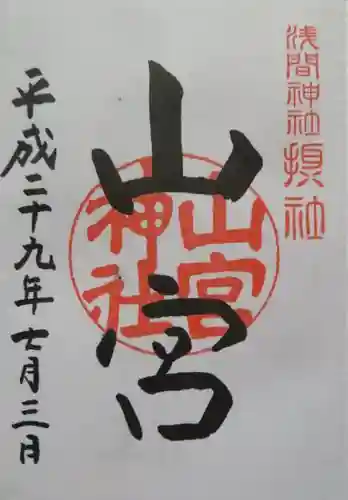 浅間神社摂社
山宮
山宮神社
平成二十九年七月三日